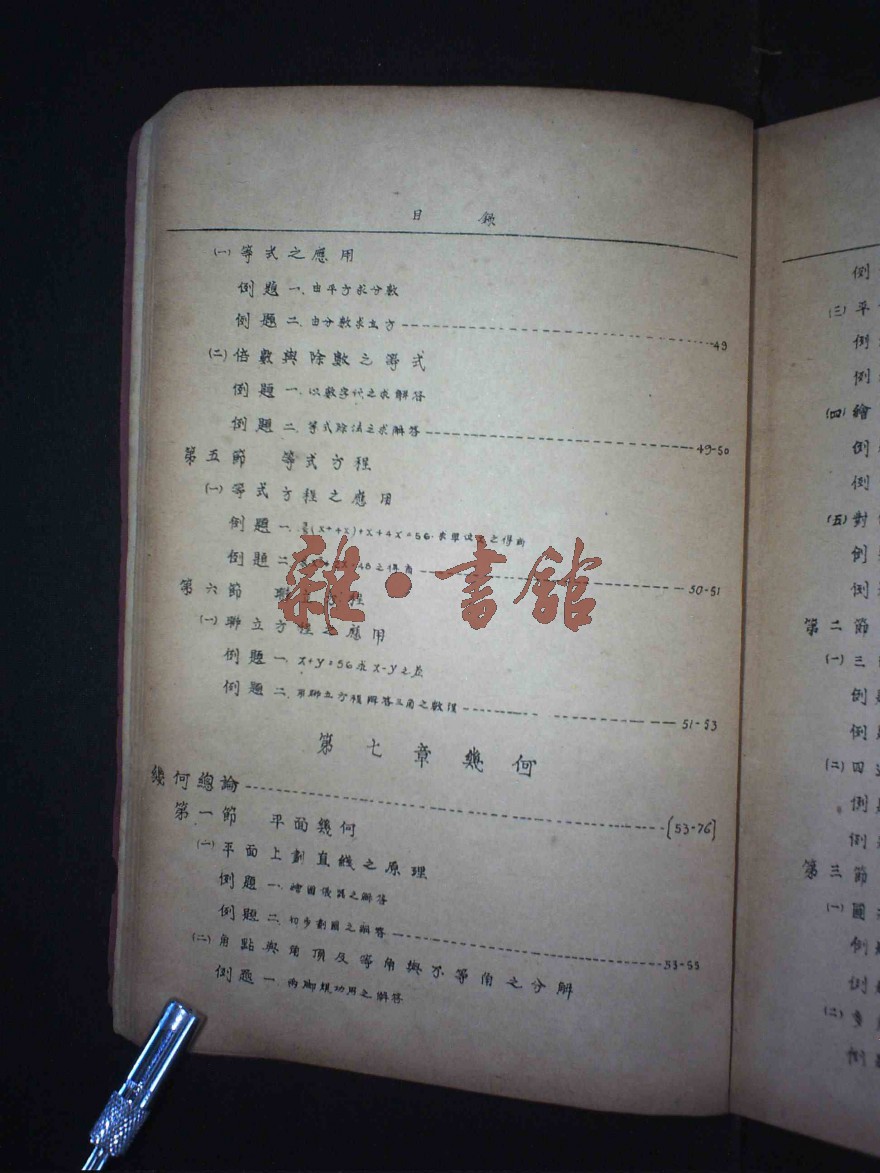 目 錄
(一) 等式之應用
例題一. 由平方求分數
例題二. 由分數求立方 49
(二) 倍數與除數之等式
例題一. 以數字代之求解答
例題二. 等式除法之求解答 49-50
第五節 等式方程
(一) 等式方程之應用
例題一. (x+4x)+x+4x=56.
例題二 50-51
第六節 聯立方程
(一) 聯立方程之應用
例題一. x+y=56求x-y之差
例題二. 用聯立方程解答三角之數值 51-53
第七章 幾何
幾何總論 [53-76]
第一節 平面幾何
(一) 平面上劃直綫之原理
例題一. 繪圖儀器之解答
例題二. 初步劃圖之解答 53-55
(二) 角點與角頂及等角與不等角之分解
例題一. 兩脚規功用之解答
例
(三) 平
例
例
(四) 繪
例
例
(五) 對
例
例
第二節
(一) 三
例
例
(二) 四
例
例
第三節
(一) 圓
例
例
(二) 多
例
雜·書館